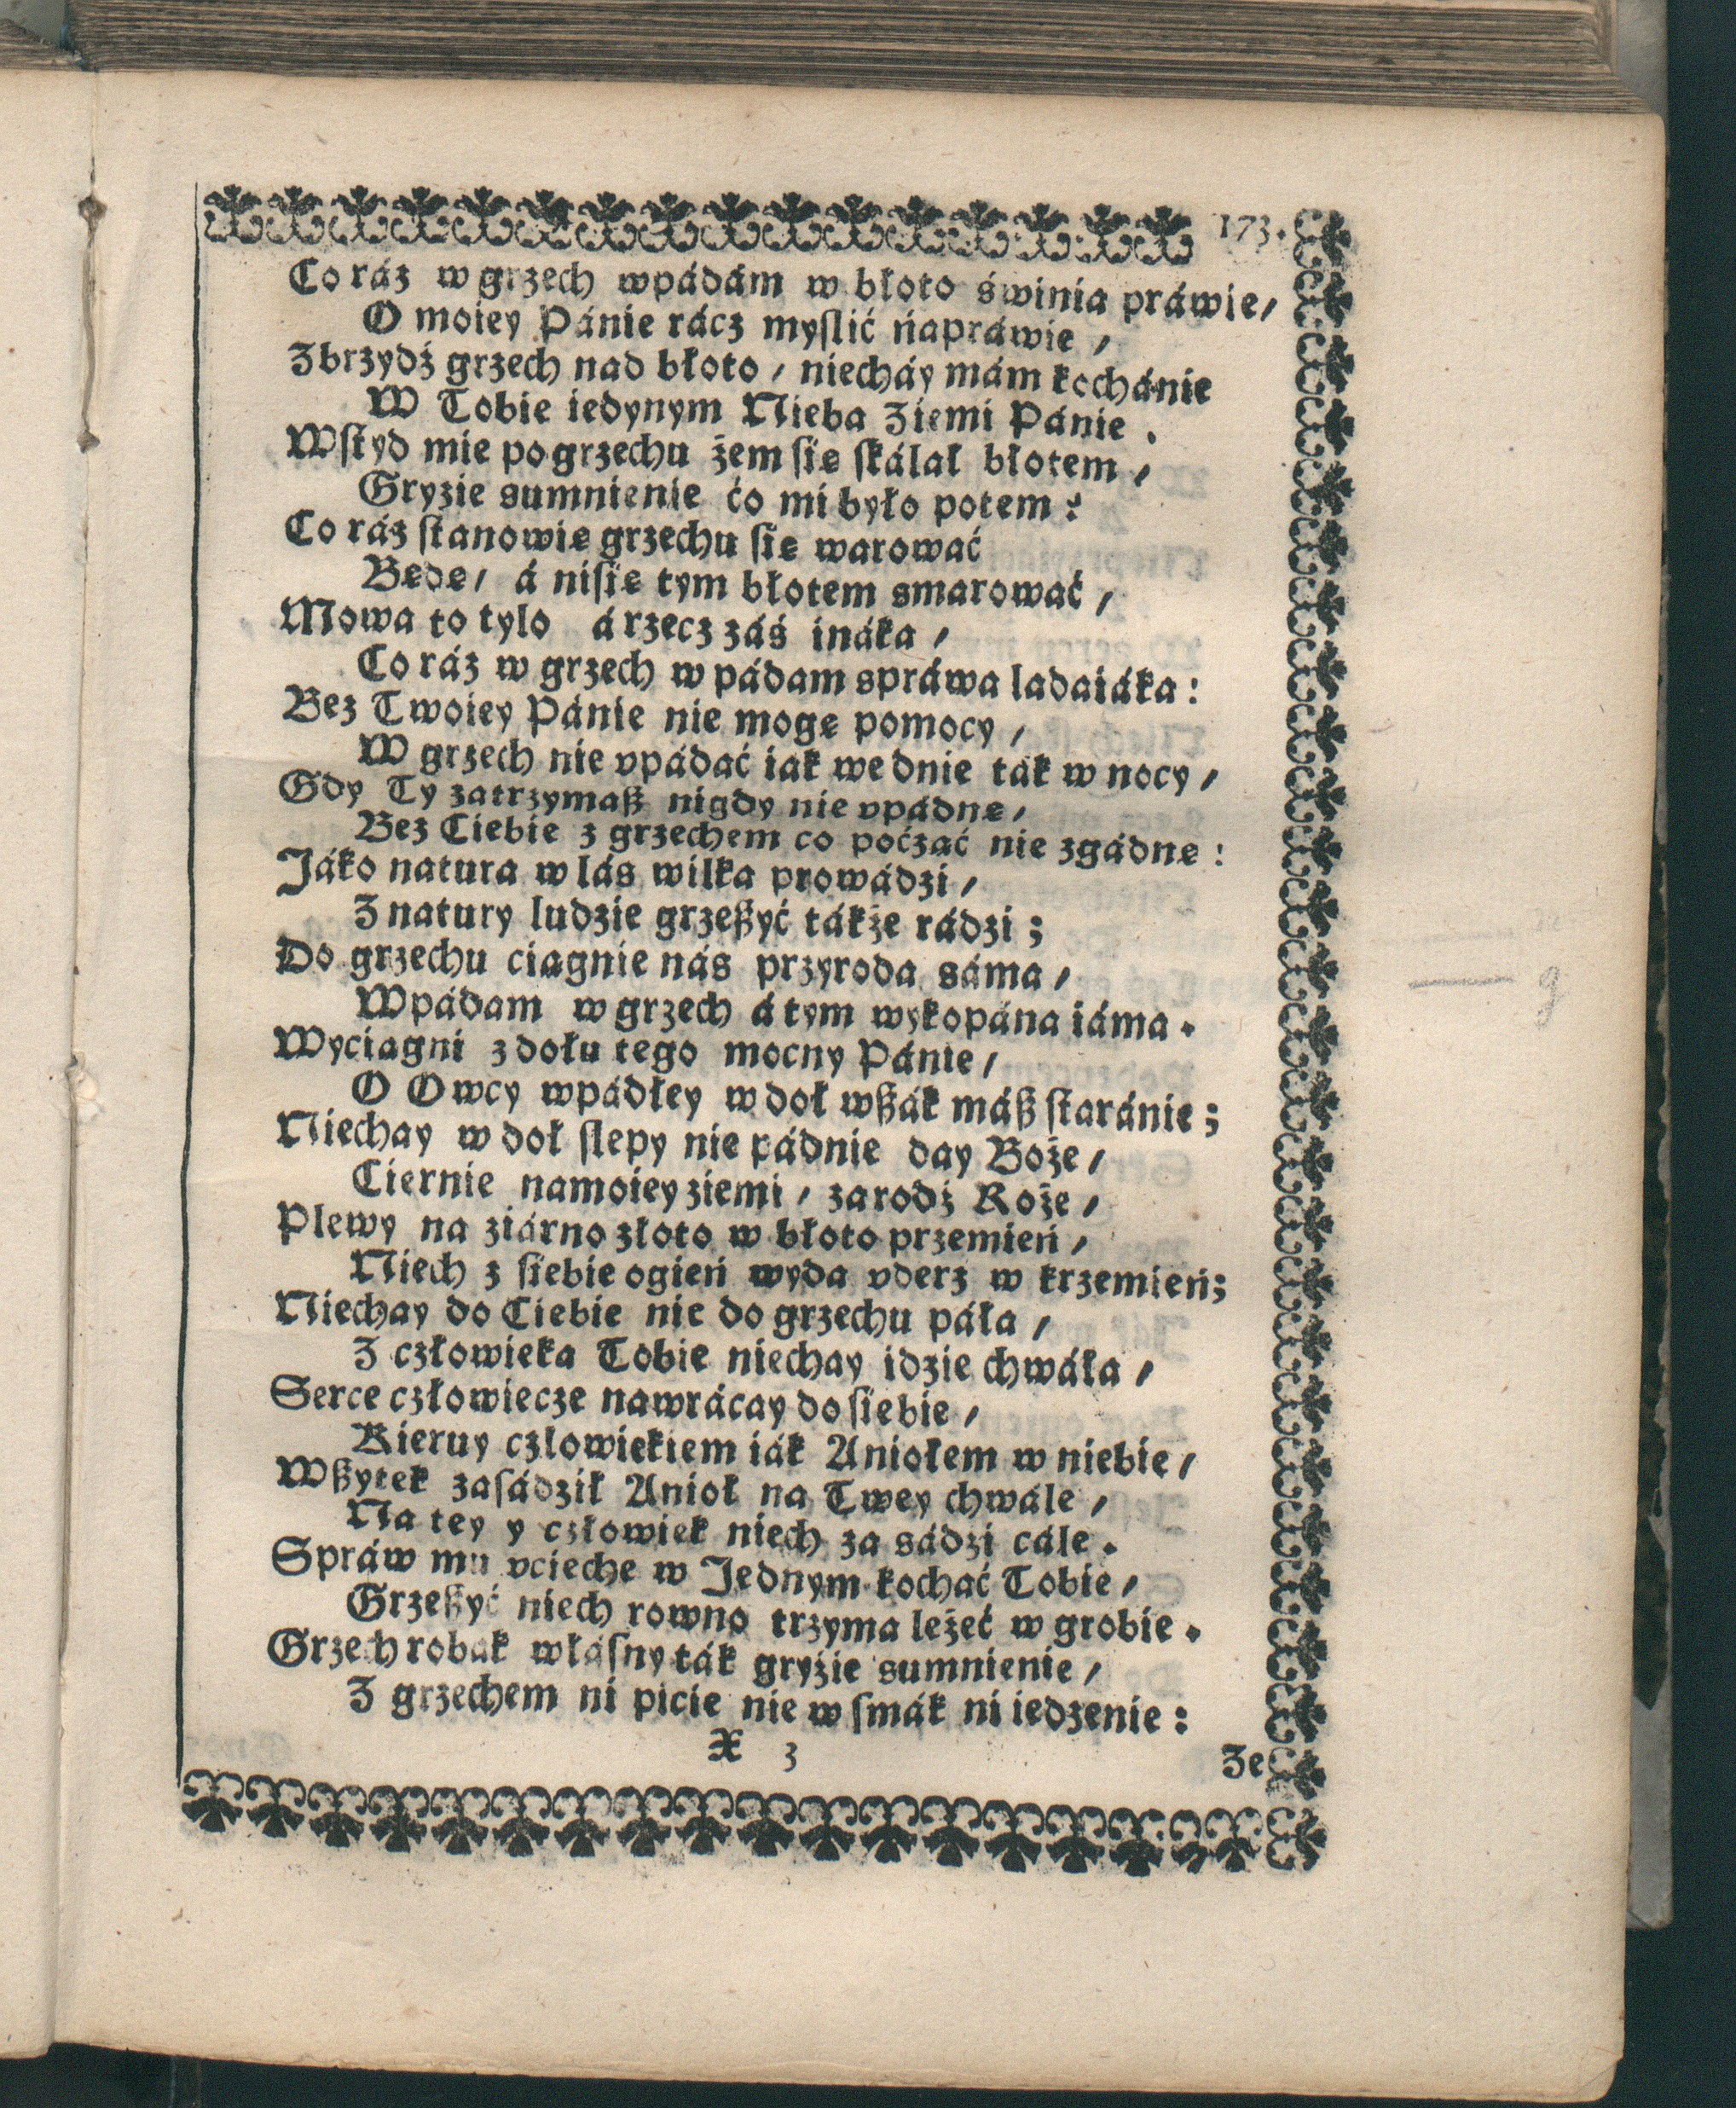 173.
Co ráz w grzech wpádám w błoto świnia práwie/
O moiey Pánie rácz myſlić náprawie /
Zbrzydź grzech nad błoto / niecháy mám kochánie
W Tobie iedynym Nieba Ziemi Pánie .
Wſtyd mie po grzechu żem ſie ſkálał błotem /
Gryzie sumnienie ćo mi było potem :
Co ráz ſtanowię grzechu ſię warować
Będę/ á niſię tym błotem smarować /
Mowa to tylo á rzecz záś ináka /
Co ráz w grzech w pádam spráwa ladaiáka :
Bez Twoiey Pánie nie mogę pomocy /
W grzech nie vpádać iak we dnie ták w nocy /
Gdy Ty zatrzymaß nigdy nie vpádnę /
Bez Ciebie z grzechem co poćzać nie zgádnę :
Jáko natura w lás wilka prowádzi /
Z natury ludzie grzeßyć tákże rádzi ;
Do grzechu ciągnie nás przyroda sáma /
Wpádam w grzech á tym wykopána iáma .
Wyciągni z dołu tego mocny Pánie /
O Owcy wpádłey w doł wßák máß ſtaránie ;
Niechay w doł ſlepy nie pádnie day Boże /
Ciernie namoiey ziemi / zarodź Roże /
Plewy na ziárno złoto w błoto przemień /
Niech z ſiebie ogień wyda vderz w krzemień;
Niechay do Ciebie nie do grzechu páła /
Z człowieka Tobie niechay idzie chwáła /
Serce człowiecze nawrácay do ſiebie /
Kieruy człowiekiem iák Aniołem w niebie /
Wßytek zaſádził Anioł na Twey chwále /
Na tey y człowiek niech za sádzi cále .
Spráw mu vciechę w Jednym kochać Tobie /
Grzeßyć niech rowno trzyma leżeć w grobie .
Grzech robak włáſny ták gryzie sumnienie /
Z grzechem ni picie nie w ſmák ni iedzenie :
X 3
Ze